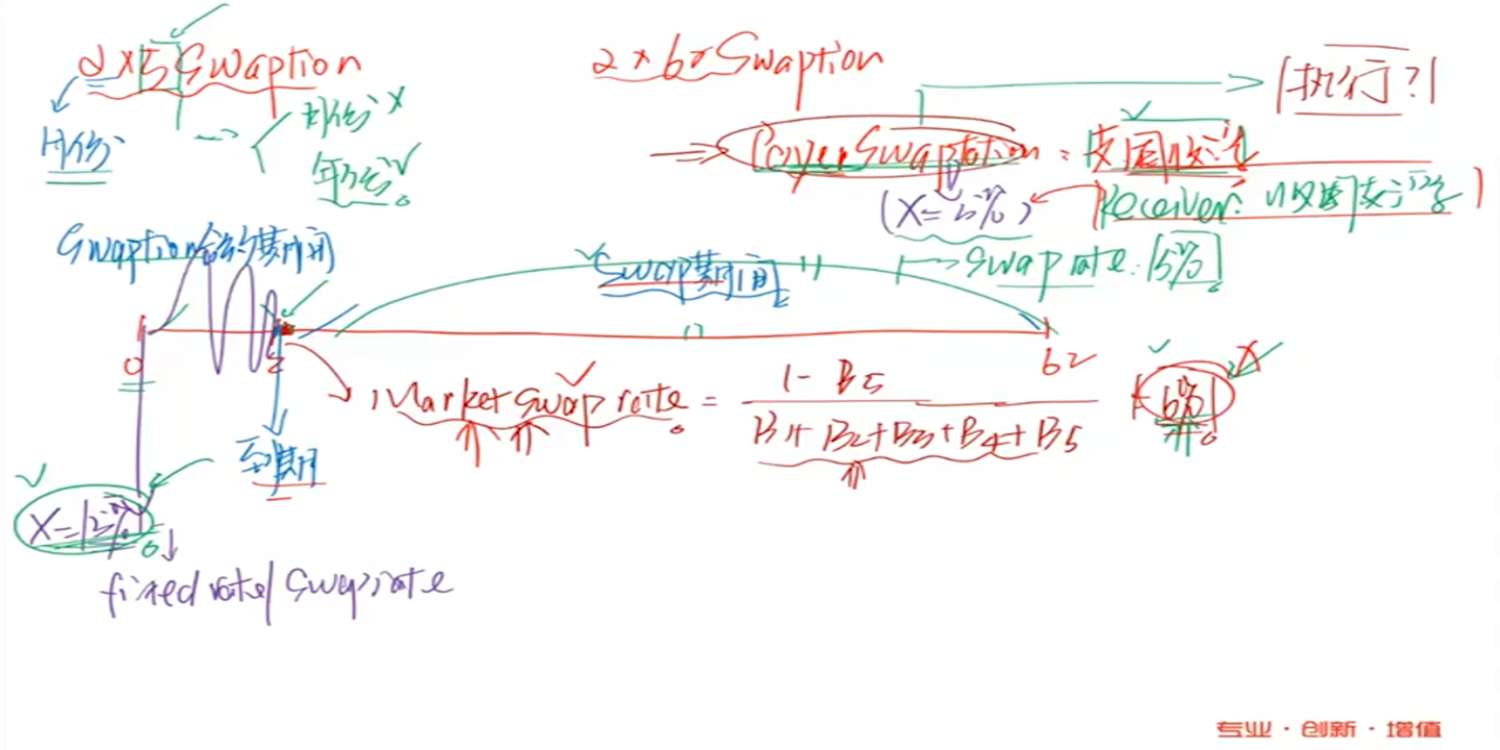 2×5 Swaption
2×62 Swaption
执行?
月份
月份 ×
年份 √
Payer Swaption: 支固收浮
(X=5%)
Receiver: 收固支浮
Swaption合约期间
Swap期间
Swap rate: 5%
0
2
62
Market Swap rate = 1 - B5
B1+B2+B3+B4+B5
6%
到期
X=5%
fixed rate/Swap rate
专业·创新·增值